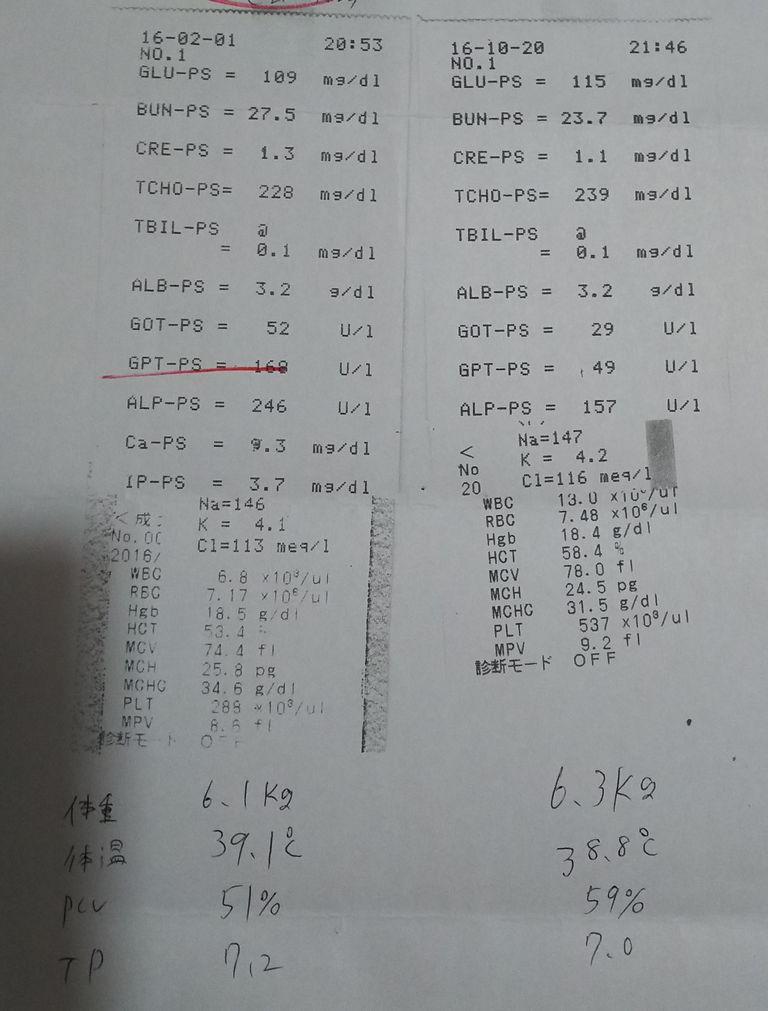 16-02-01 20:53
NO.1
GLU-PS = 109 mg/dl
BUN-PS = 27.5 mg/dl
CRE-PS = 1.3 mg/dl
TCHO-PS= 228 mg/dl
TBIL-PS @
= 0.1 mg/dl
ALB-PS = 3.2 g/dl
GOT-PS = 52 U/l
GPT-PS = 168 U/l
ALP-PS = 246 U/l
Ca-PS = 9.3 mg/dl
IP-PS = 3.7 mg/dl
Na=146
<成: K = 4.1
No.00 Cl=113 meq/l
2016/
WBC 6.8 x10³/ul
RBC 7.17 x10⁶/ul
Hgb 18.5 g/dl
HCT 53.4 %
MCV 74.4 fl
MCH 25.8 pg
MCHC 34.6 g/dl
PLT 288 x10³/ul
MPV 8.6 fl
診断モード OFF
16-10-20 21:46
NO.1
GLU-PS = 115 mg/dl
BUN-PS = 23.7 mg/dl
CRE-PS = 1.1 mg/dl
TCHO-PS= 239 mg/dl
TBIL-PS @
= 0.1 mg/dl
ALB-PS = 3.2 g/dl
GOT-PS = 29 U/l
GPT-PS = 49 U/l
ALP-PS = 157 U/l
Na=147
< K = 4.2
No
20 Cl=116 meq/l
WBC 13.0 x10³/ul
RBC 7.48 x10⁶/ul
Hgb 18.4 g/dl
HCT 58.4 %
MCV 78.0 fl
MCH 24.5 pg
MCHC 31.5 g/dl
PLT 537 x10³/ul
MPV 9.2 fl
診断モード OFF
体重 6.1Kg 6.3Kg
体温 39.1℃ 38.8℃
PCV 51% 59%
TP 7.2 7.0